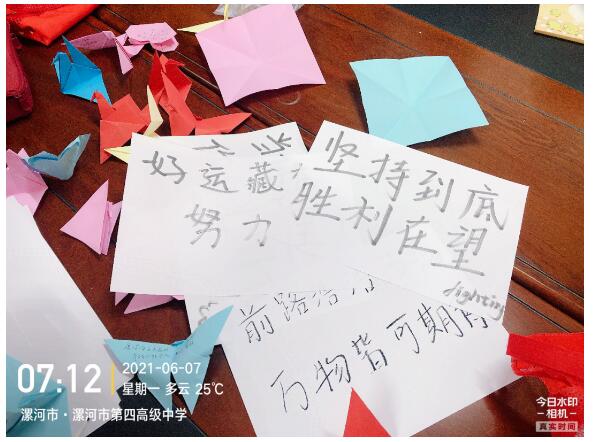 好运藏
努力
坚持到底
胜利在望
fighting
前路浩浩
万物皆可期待
07:12
2021-06-07
星期一 多云 25℃
漯河市·漯河市第四高级中学
今日水印
-相机-
真实时间